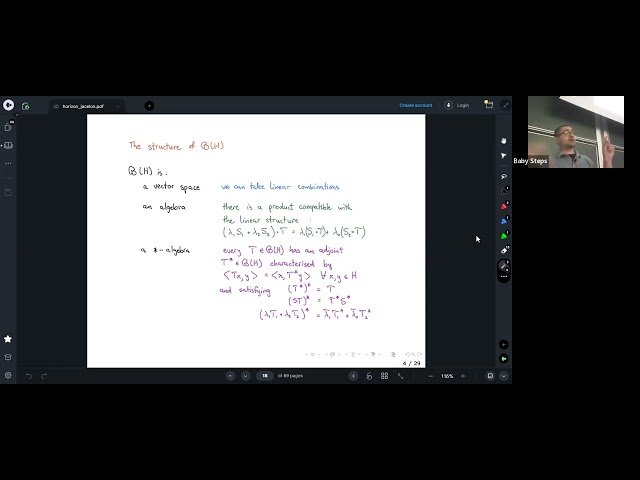 horizon_jacelon.pdf
Create account
Login
The structure of B(H)
B(H) is:
a vector space we can take linear combinations
an algebra there is a product compatible with
the linear structure :
(λ₁S₁ + λ₂S₂)·T = λ₁(S₁·T) + λ₂(S₂·T)
a *-algebra every T ∈ B(H) has an adjoint
T* ∈ B(H) characterised by
⟨Tx,y⟩ = ⟨x,T*y⟩ ∀ x,y ∈ H
and satisfying (T*)* = T
(ST)* = T*S*
(λ₁T₁ + λ₂T₂)* = λ̄₁T₁* + λ̄₂T₂*
4 / 29
18 of 89 pages
116%
Baby Steps